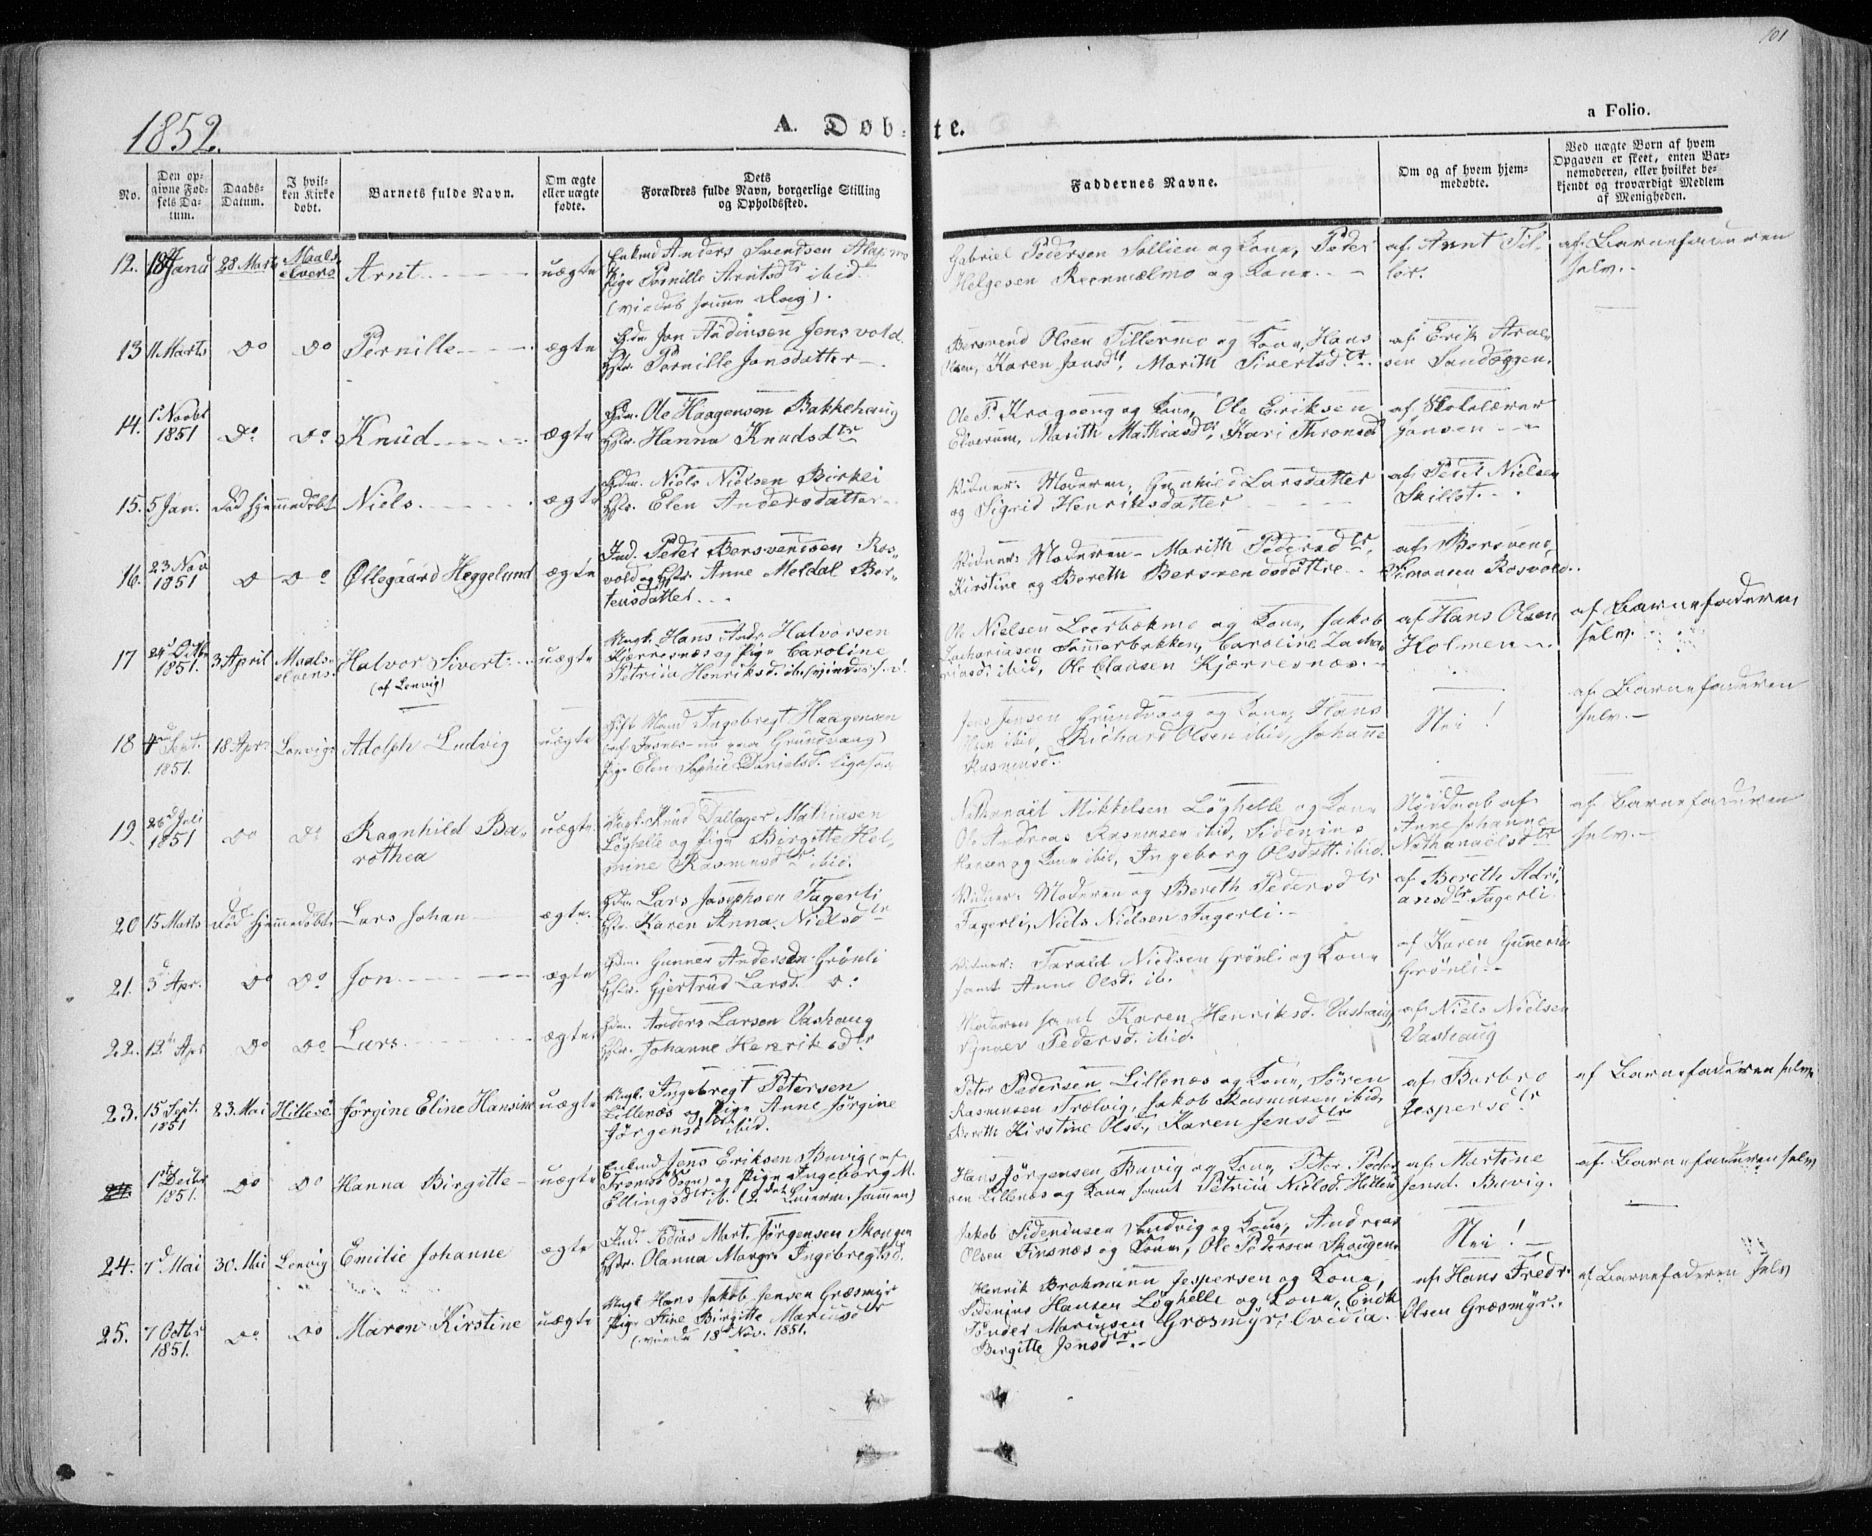 101
1852.
A. Døb-te.
a Folio.
No.
Den op-
givne Fød-
sels Da-
tum.
Daabs-
Datum.
I hvil-
ken Kirke
døbt.
Barnets fulde Navn.
Om ægte
eller uægte
fødte.
Dets
Forældres fulde Navn, borgerlige Stilling
og Opholdssted.
Faddernes Navne.
Om og af hvem hjem-
medøbte.
Ved uægte Børn af hvem
Opgaven er skeet, enten Bar-
nemoderen, eller hvilket be-
kjendt og troværdigt Medlem
af Menigheden.
12. 18 Janu 28 Marts Maals
elvens Arnt uægte
Enkmd Anders Svendsen
Pige Pernille Arntsdtr ibid
(viedes samme Dag).
Gabriel Pedersen Sollien og Kone, Peder
Helgesen og Kone.
af Arnt Til-
ler.
af Barnefaderen
selv.
13 11 Marts Do Do Pernille ægte
Gdm. Jon Jensvold
Hstr. Pernille Jonsdatter
Bersvend Olsen Tillermo og Kone, Hans
Olsen, Karen Jonsdtr, Marith Sivertsdtr.
af Erik Arne-
sen Sandeggen.
14. 1 Novbr
1851 Do. Do Knud ægte
Gdm. Ole Haagensen Bakkehaug
Hstr. Hanna Knudsdtr
Ole P. Krogseng og Kone, Ole Eriksen
Elverum, Marith Mathiasdtr, Kari Thronsd.
af Skolelærer
Jensen
15. 5 Jan. Død Hjemmedøbt Niels ægte
Gdm. Niels Nielsen Birkli
Hstr. Elen Andersdatter
Vidner: Moderen, Gunhild Larsdatter
og Sigrid Henriksdatter
af Peder Nielsen
16. 23 Nov
1851 Do Do Øllegaard Heggelund ægte
Ind. Peder Bersvendsen Ros-
vold og Hstr. Anne Meldal Mor-
tensdatter
Vidner: Moderen - Marith Pedersdtr
Kirstine og Bereth Bersvendsdøttre
af Bersvend
Simonsen Rosvold.
17 24 Octb
1851. 3 April Maals-
elvens Halvor Sivert uægte
(af Lenvig)
Ungk. Hans Andr. Halvorsen
Kjærresnæs og Pige Caroline
Petrina Henriksd.
Ole Nielsen Leerbækmo og Kone, Jakob
Zachariasen Sommerbakken, Caroline Zacha-
riasd. ibid, Ole Clausen Kjærresnæs.
af Hans Olsen
Holmen
af Barnefaderen
selv.
18 4 Sept.
1851. 18 Apr. Lenvigs Adolph Ludvig uægte
Gift Mand Ingebregt Haagensen
Grundvaag)
Pige Elen Sophie Danielsd.
Jens Jensen Grundvaag og Kone, Hans
ibid, Richard Olsen ibid, Johanne
Rasmusd.
Nei!
af Barnefaderen
selv.
19. 26 Juli
1851 Do Do Ragnhild Ba-
rothea uægte
Ungk. Knud Dallager Mathiasen
Løghelle og Pige Birgitte Hel-
mine Rasmusdtr ibid.
Nathanael Mikkelsen Løghelle og Kone
Ole Andreas Rasmusen ibid, Sidenius
Hansen og Kone ibid, Ingeborg Olsdatt. ibid.
Nøddaab af
Anne Johanne
Nathanaelsdtr
af Barnefaderen
selv.
20 15 Marts Død Hjemmedøbt Lars Johan ægte
Gdm Lars Josephsen Fagerli
Hstr. Karen Anna Nielsdtr
Vidner: Moderen og Bereth Pedersdtr
Fagerli, Niels Nielsen Fagerli.
af Bereth Adri-
ansdtr Fagerli
21. 3 Apr. Do Do Jon ægte
Gdm. Gunner Andersen Grönli
Hstr. Gjertrud Larsd. Do
Vidner: Tarald Nielsen Grönli og Kone
samt Anne Olsd. ib.
af Karen Gunersd.
Grönli.
22. 12 Apr Do Do Lars ægte
Gdm. Anders Larsen Vashaug
Hstr. Johanne Henriksdtr
Moderen samt Karen Henriksd. Vashaug,
Pedersd. ibid.
af Niels Nielsen
Vashaug
23. 15 Sept.
1851 23. Mai Hillesö Jørgine Eline Hansine uægte
Ungk. Ingebregt Petersen
Lillenæs og Pige Anne Jørgine
Jørgensdtr ibid.
Peter Pedersen Lillenæs og Kone, Søren
Rasmusen Trælvig, Jakob Rasmusen ibid,
Bereth Kirstine Olsd., Karen Jensdtr
af Barbro
Jespersdtr
af Barnefaderen selv.
24. 1 Decbr
1851. Do Do Hanna Birgitte uægte
Enkmd Jens Eriksen Buvig (af
Tromsö Sogn) og Pige Ingeborg M.
Ellingsdtr ib. (2den Leierm. sammen)
Hans Jørgensen Buvig og Kone, Peter Peder-
sen Lillenæs og Kone samt Petrina Nielsd. Hillesö
af Martine
Jensd. Buvig.
af Barnefaderen selv
24. 7 Mai 30. Mai Lenvig Emilie Johanne ægte
Ind. Edias Mart. Jørgensen Skougen
Hstr. Olanna Margr. Ingebregtsd.
Jakob Sideniusen Sandvig og Kone, Andreas
Olsen Finsnæs og Kone, Ole Pedersen Skougen
Nei!
25. 7 Octbr
1851. Do Do Maren Kirstine uægte
Ungk. Hans Jakob Jensen Græsmyr
Pige Stine Birgitte Mariusdtr
(viede 18 Nov. 1851.
Henrik Brokmann Jespersen og Kone,
Sidenius Hansen Løghelle og Kone, Erik
Tønder Mariusen Græsmyr, Ovidia
Birgitte Jensdtr.
af Hans Fredr.
Olsen Græsmyr.
af Barnefaderen selv